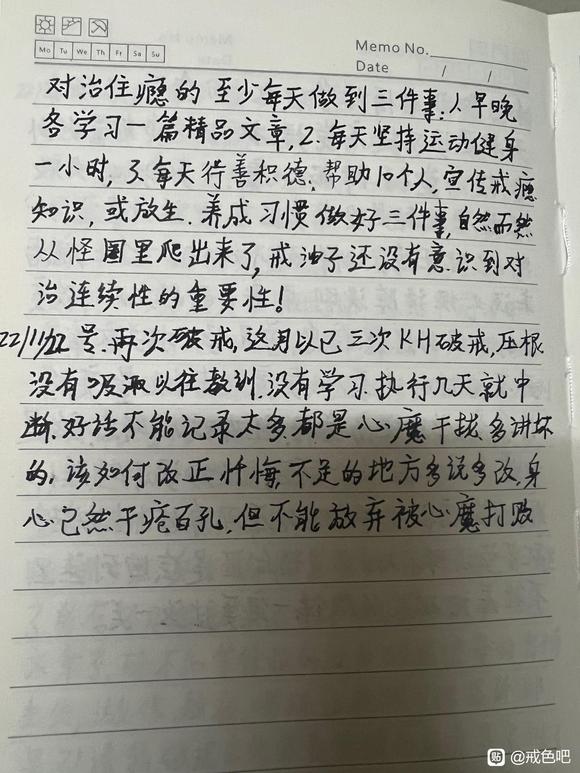 Mo Tu We Th Fr Sa Su
Memo No.
Date / /
对治住瘾的至少每天做到三件事:1.早晚
各学习一篇精品文章,2.每天坚持运动健身
一小时,3每天行善积德,帮助10个人,宣传戒瘾
知识,或放生.养成习惯做好三件事,自然而然
从怪圈里爬出来了,戒油子还没有意识到对
治连续性的重要性!
22/11/22号.再次破戒,这月以已三次KH破戒,压根
没有吸取以往教训.没有学习执行几天就中
断.好话不能记录太多.都是心魔干扰.多讲坏
的,该如何改正忏悔,不足的地方多说多改,身
心已然千疮百孔,但不能放弃被心魔打败
贴 @戒色吧